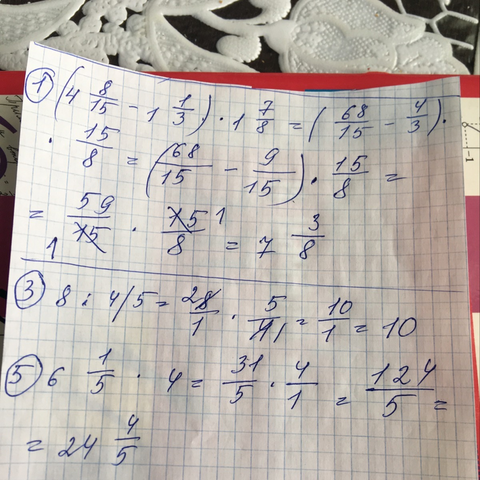 ① (4 8/15 - 1 1/3) · 1 7/8 = (68/15 - 4/3) ·
· 15/8 = (68/15 - 9/15) · 15/8 =
= 59/15 · 15/8 = 7 3/8
1 1
③ 8 : 4/5 = 8/1 · 5/4 = 10/1 = 10
2 1
⑤ 6 1/5 · 4 = 31/5 · 4/1 = 124/5 =
= 24 4/5